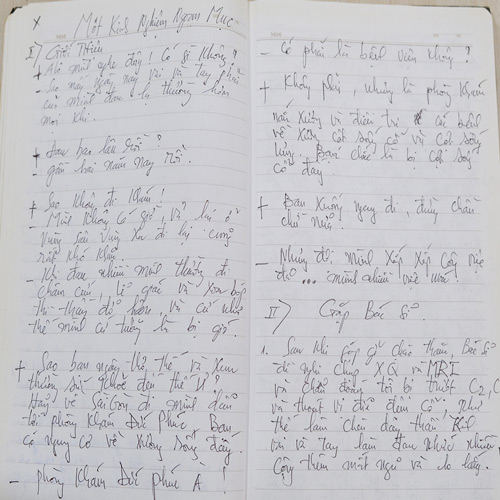 x Một Kinh Nghiệm Ngoạn Mục
I) Giới Thiệu
+ Alô mình nghe đây! Có gì không?
- Sao mấy ngày nay vai và tay phải
của mình đau lạ thường hơn
mọi khi.
+ Đau bao lâu rồi?
- gần hai năm nay rồi.
+ Sao không đi khám!
- Mình không có giờ, vả lại ở
vùng sâu vùng xa đi lại cũng
rất khó khăn.
- Khi đau nhiều mình thường đi
châm cứu, lể giác và xoa bóp
thì thấy đỡ hơn, và cứ như
thế mình cứ tưởng là bị gió.
+ Sao bạn ngây thơ thế và xem
thường sức khỏe đến thế ư?
Hãy về Sài Gòn đi mình dẫn
tới phòng khám Đức Phúc, Bạn
có nguy cơ về xương sống đấy.
- phòng khám Đức phúc À!
- Có phải là bệnh viện không?
+ Không phải, nhưng là phòng khám
nắn xương và điều trị các bệnh
về xương cột sống cổ và cột sống
lưng. Bạn chắc là bị cột sống
cổ đấy
+ Bạn xuống ngay đi, đừng chần
chừ nữa.
- Nhưng đợi mình sắp xếp công việc
đã... mình nhiều việc lắm!
II) Gặp Bác sĩ.
1. Sau khi gặp gỡ chào thăm, Bác sĩ
đề nghị chụp XQ và MRI
và chẩn đoán tôi bị trượt C2, C
và thoát vị đĩa đệm cổ, như
thế làm chèn dây thần kinh
vai và tay làm đau nhức nhiều
cộng thêm mất ngủ và lo lắng.